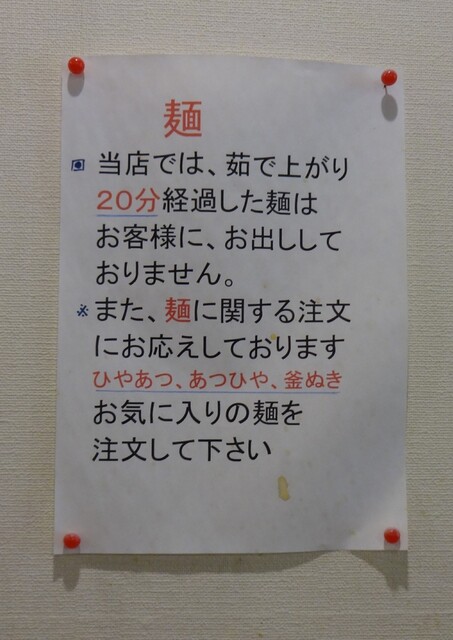 麺
当店では、茹で上がり
20分経過した麺は
お客様に、お出しして
おりません。
※また、麺に関する注文
にお応えしております
ひやあつ、あつひや、釜ぬき
お気に入りの麺を
注文して下さい